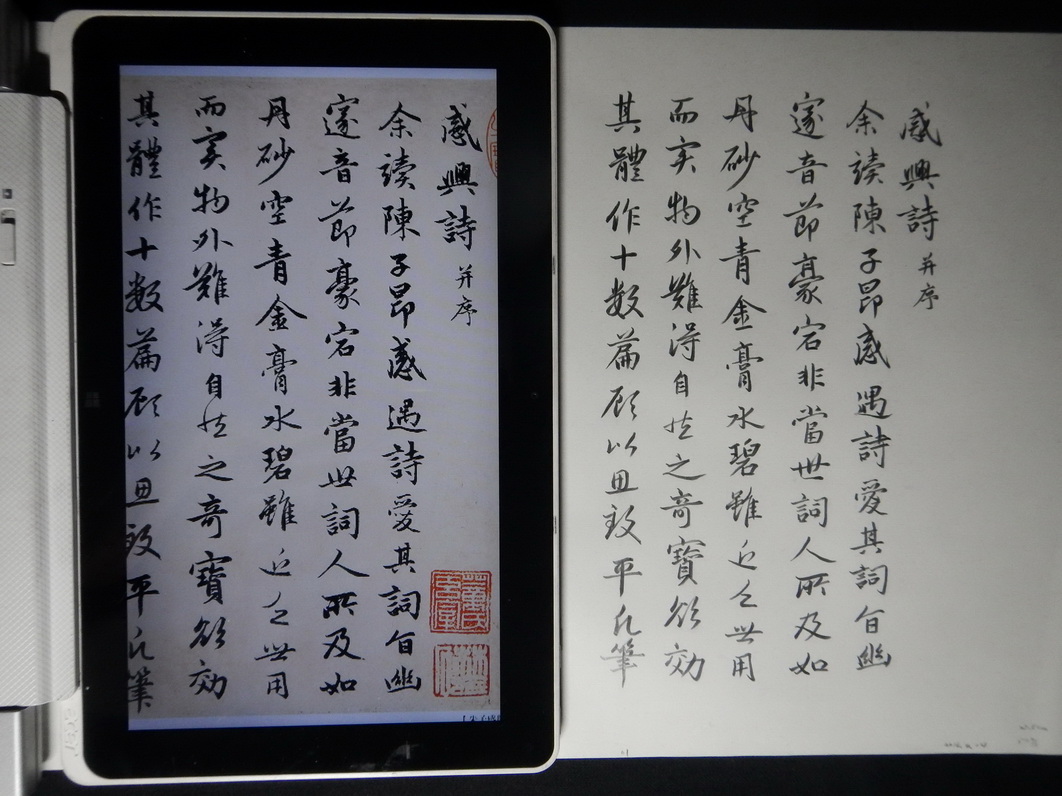 感興詩并序
余讀陳子昂感遇詩愛其詞旨幽
邃音節豪宕非當世詞人所及如
丹砂空青金膏水碧雖近乏世用
而實物外難得自然之奇寶欲効
其體作十数篇顧以思致平凡筆
感興詩并序
余讀陳子昂感遇詩愛其詞旨幽
邃音節豪宕非當世詞人所及如
丹砂空青金膏水碧雖近乏世用
而實物外難得自然之奇寶欲効
其體作十数篇顧以思致平凡筆